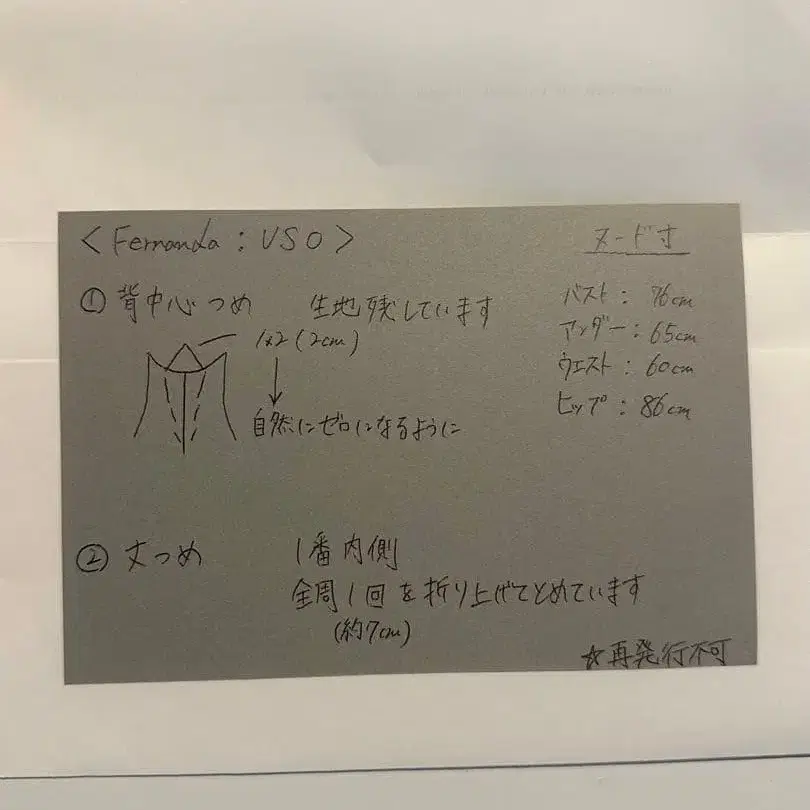 <Fernanda : US0>
ヌード寸
① 背中心つめ 生地残しています
1×2 (2cm)
自然にゼロになるように
バスト : 76cm
アンダー : 65cm
ウエスト : 60cm
ヒップ : 86cm
② 丈つめ 1番内側
全周1回を折り上げてとめています
(約7cm)
☆再発行不可